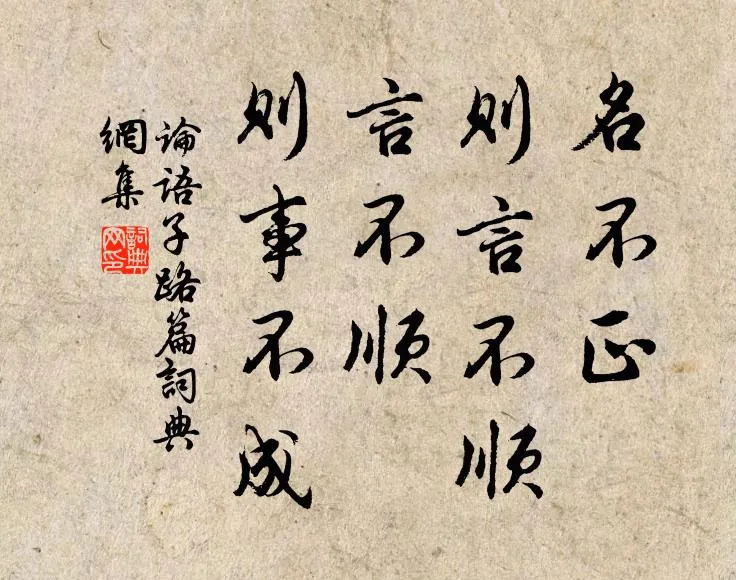 名不正
则言不顺
言不顺
则事不成
論語子路篇詞典
網集
詞典
网印